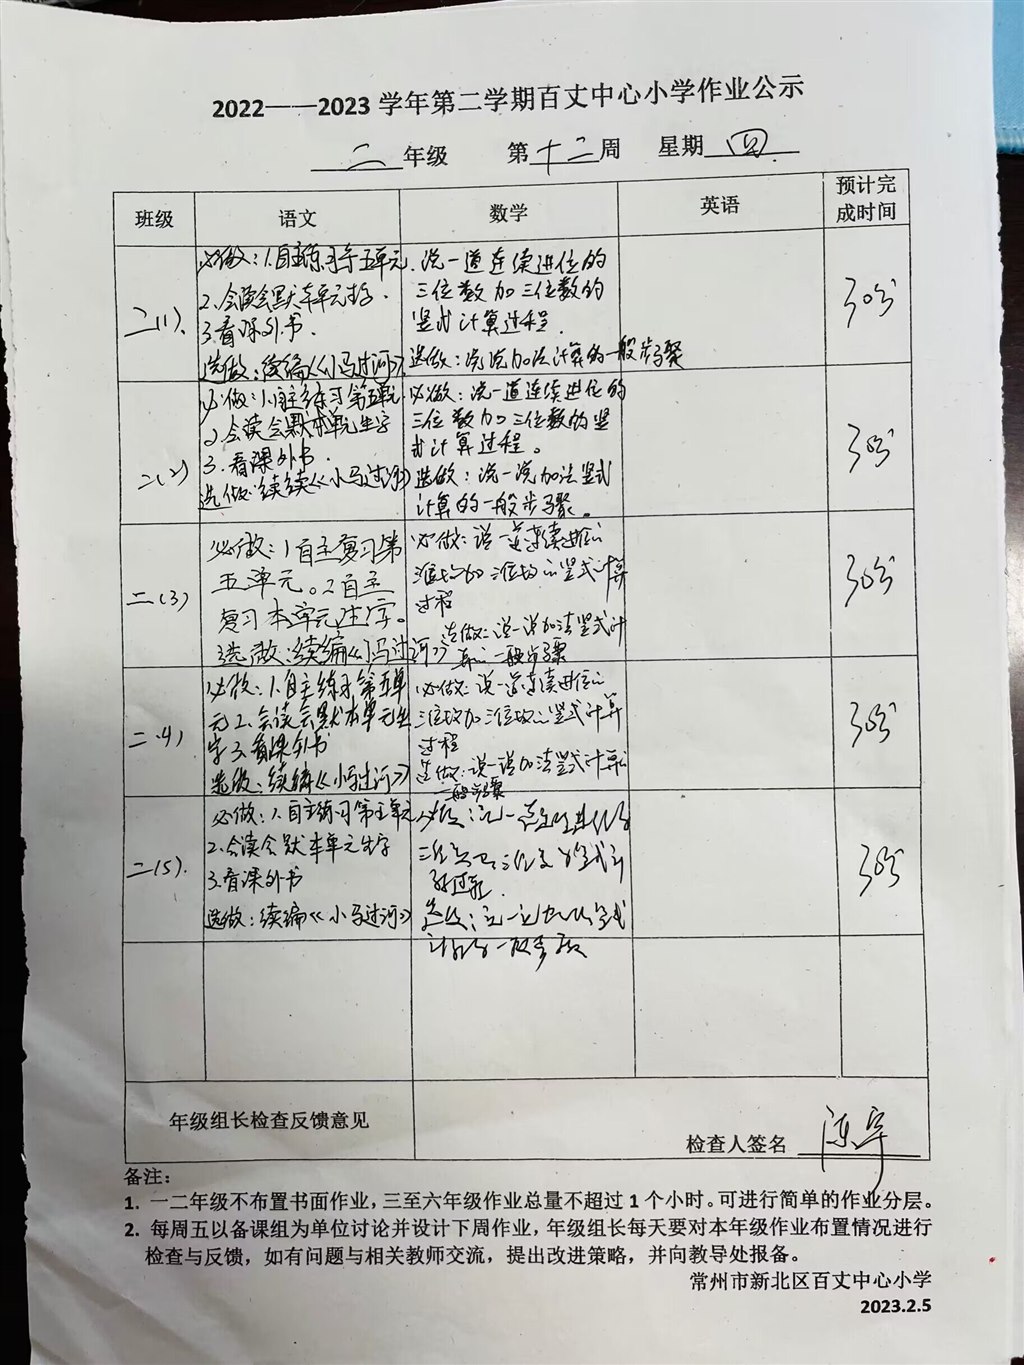 2022——2023 学年第二学期百丈中心小学作业公示
二 年级 第 十二 周 星期 四
班级 语文 数学 英语 预计完成时间
二(1).
必做：1.自主练习第五单元.
2.会读会默本单元生字.
3.看课外书.
选做：续编《小马过河》.
说一道连续进位的
三位数加三位数的
竖式计算过程.
选做：说说加法计算的一般步骤
30分
二(2)
必做：1.自主练习第五单元
2.会读会默本单元生字
3.看课外书.
选做：续续《小马过河》
必做：说一道连续进位的
三位数加三位数的竖
式计算过程。
选做：说一说加法竖式
计算的一般步骤。
30分
二(3)
必做：1自主复习第
五单元。2自主
复习本单元生字。
选做：续编《小马过河》
必做：说一道连续进位的
三位数加三位数的竖式计算
过程
选做：说一说加法竖式计
算的一般步骤
30分
二(4)
必做：1.自主练习第五单
元2.会读会默本单元生
字3.看课外书
选做：续编《小马过河》
必做：说一道连续进位的
三位数加三位数的竖式计算
过程
选做：说一说加法竖式计算的
一般步骤
30分
二(5).
必做：1.自主练习第五单元
2.会读会默本单元生字
3.看课外书
选做：续编《小马过河》
必做：说一道连续进位的
三位数加三位数的竖式计
算过程.
选做：说一说加法竖式
计算的一般步骤
30分
年级组长检查反馈意见
检查人签名
备注：
1. 一二年级不布置书面作业，三至六年级作业总量不超过 1 个小时。可进行简单的作业分层。
2. 每周五以备课组为单位讨论并设计下周作业，年级组长每天要对本年级作业布置情况进行
检查与反馈，如有问题与相关教师交流，提出改进策略，并向教导处报备。
常州市新北区百丈中心小学
2023.2.5